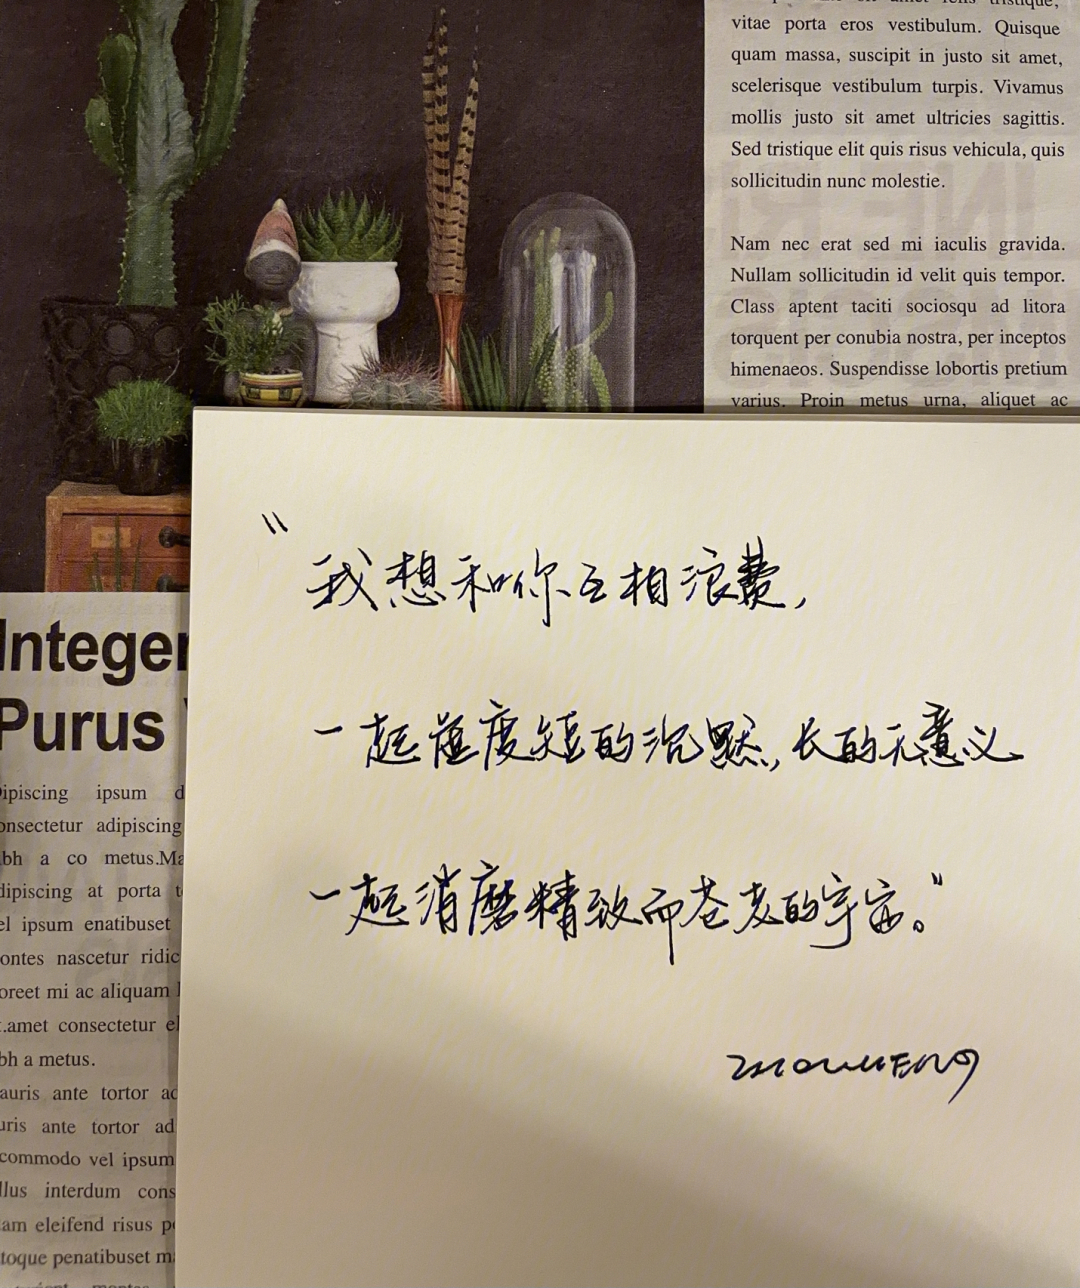 vitae porta eros vestibulum. Quisque
quam massa, suscipit in justo sit amet,
scelerisque vestibulum turpis. Vivamus
mollis justo sit amet ultricies sagittis.
Sed tristique elit quis risus vehicula, quis
sollicitudin nunc molestie.
Nam nec erat sed mi iaculis gravida.
Nullam sollicitudin id velit quis tempor.
Class aptent taciti sociosqu ad litora
torquent per conubia nostra, per inceptos
himenaeos. Suspendisse lobortis pretium
varius. Proin metus urna, aliquet ac
"我想和你互相浪费,
一起虚度短的沉默,长的无意义
一起消磨精致而苍老的宇宙。"
Integer
Purus
ipiscing ipsum d
onsectetur adipiscing
bh a co metus.Ma
dipiscing at porta t
el ipsum enatibuset
ontes nascetur ridic
oreet mi ac aliquam
.amet consectetur el
bh a metus.
auris ante tortor ac
uris ante tortor ad
commodo vel ipsum
llus interdum cons
am eleifend risus p
toque penatibuset m